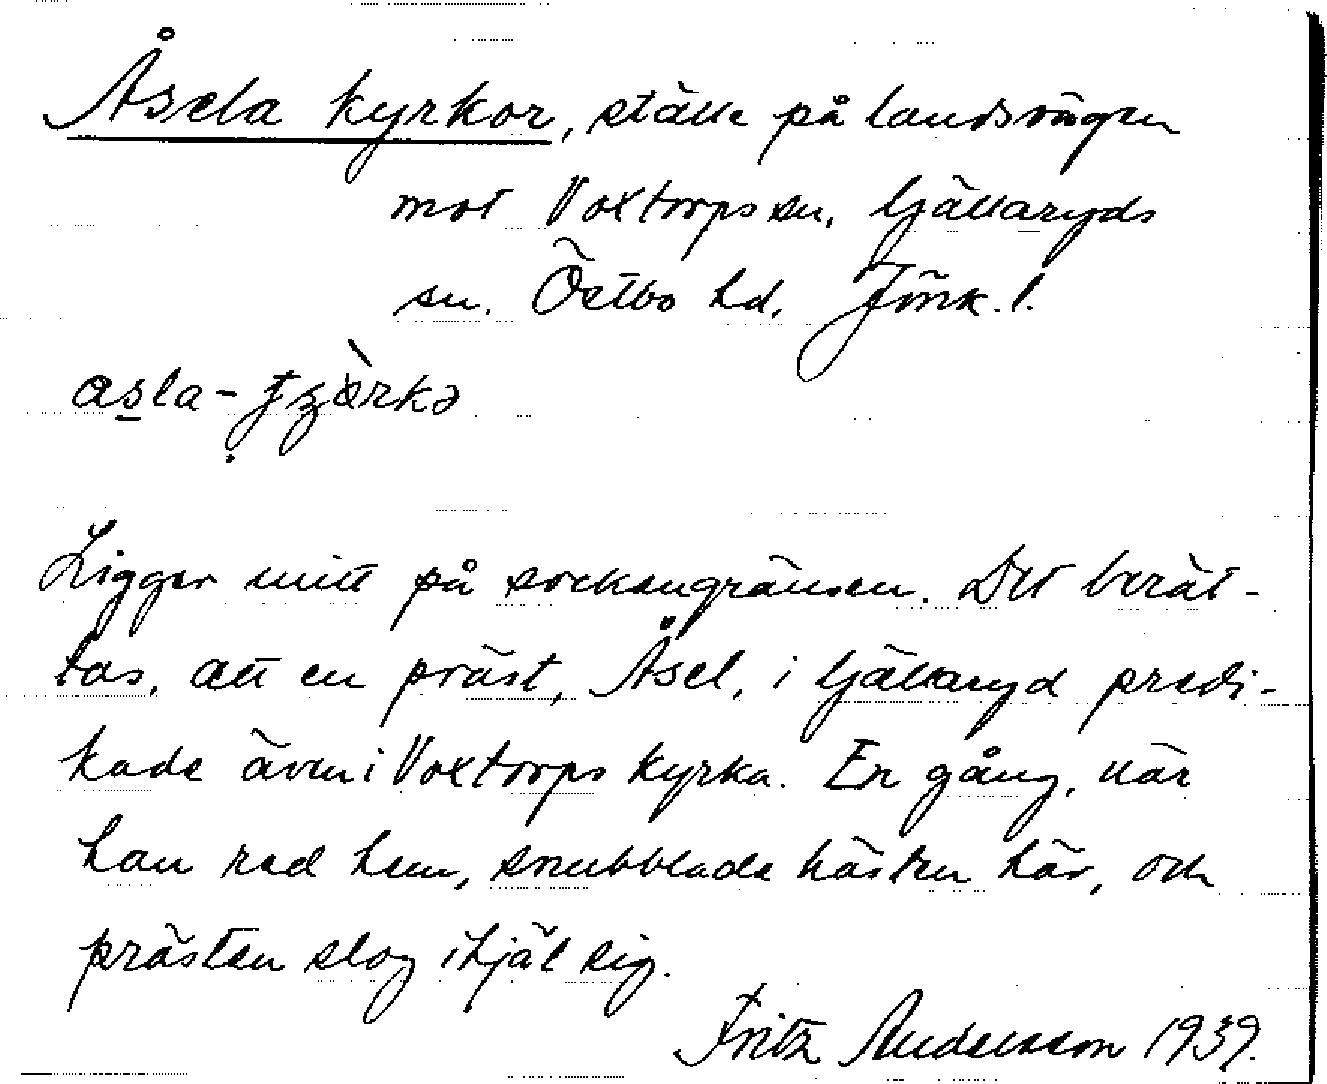 Åsela kyrkor, ställe på landsvägen
mot Voxtorps sn, Gällaryds
sn. Östbo hd, Jönk. l.
Ligger mitt på sockengränsen. Det berät-
tas, att en präst, Åsel, i Gällaryd predi-
kade även i Voxtorps kyrka. En gång, när
han red hem, snubblade hästen här, och
prästen slog ihjäl sig.
Fritz Andersson 1939.